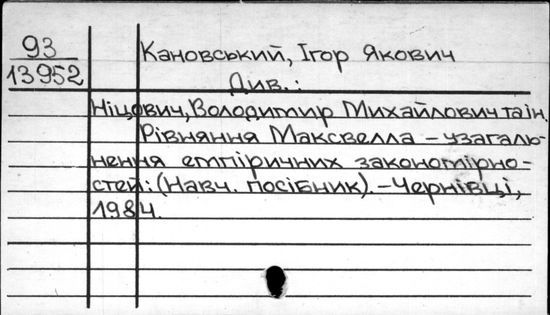 93
13952
Кановський, Ігор Якович
Див.:
Ніцович, Володимир Михайлович та ін.
Рівняння Максвелла - узагаль-
нення емпіричних закономірно-
стей: (Навч. посібник). - Чернівці,
1984.